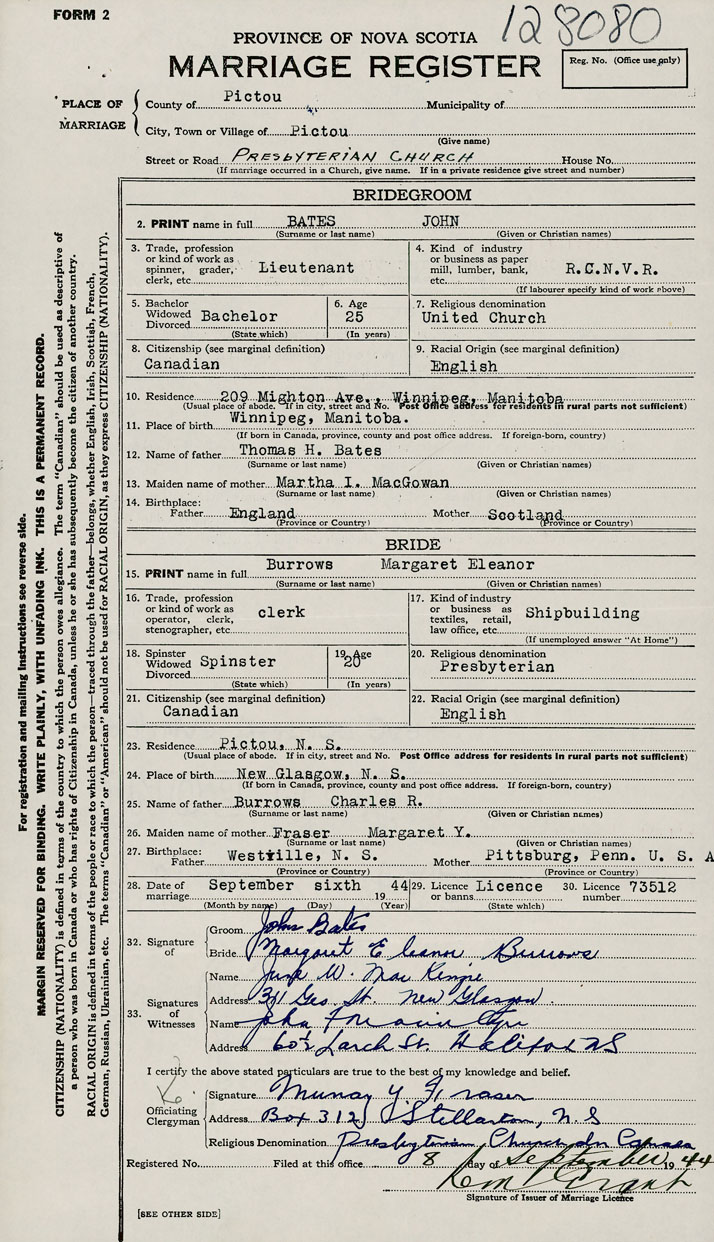 FORM 2
128080
PROVINCE OF NOVA SCOTIA
MARRIAGE REGISTER
Reg. No. (Office use only)
PLACE OF MARRIAGE
County of Pictou Municipality of
City, Town or Village of Pictou
(Give name)
Street or Road PRESBYTERIAN CHURCH House No.
(If marriage occurred in a Church, give name. If in a private residence give street and number)
BRIDEGROOM
2. PRINT name in full BATES JOHN
(Surname or last name) (Given or Christian names)
3. Trade, profession or kind of work as spinner, grader, clerk, etc. Lieutenant
4. Kind of industry or business as paper mill, lumber, bank, etc. R.C.N.V.R.
(If labourer specify kind of work above)
5. Bachelor Widowed Divorced Bachelor
(State which)
6. Age 25
(In years)
7. Religious denomination
United Church
8. Citizenship (see marginal definition)
Canadian
9. Racial Origin (see marginal definition)
English
10. Residence 209 Mighton Ave., Winnipeg, Manitoba
(Usual place of abode. If in city, street and No. Post Office address for residents in rural parts not sufficient)
11. Place of birth Winnipeg, Manitoba.
(If born in Canada, province, county and post office address. If foreign-born, country)
12. Name of father Thomas H. Bates
(Surname or last name) (Given or Christian names)
13. Maiden name of mother Martha I. MacGowan
(Surname or last name) (Given or Christian names)
14. Birthplace:
Father England Mother Scotland
(Province or Country) (Province or Country)
BRIDE
15. PRINT name in full Burrows Margaret Eleanor
(Surname or last name) (Given or Christian names)
16. Trade, profession or kind of work as operator, clerk, stenographer, etc. clerk
17. Kind of industry or business as textiles, retail, law office, etc. Shipbuilding
(If unemployed answer "At Home")
18. Spinster Widowed Divorced Spinster
(State which)
19. Age 20
(In years)
20. Religious denomination
Presbyterian
21. Citizenship (see marginal definition)
Canadian
22. Racial Origin (see marginal definition)
English
23. Residence Pictou, N. S.
(Usual place of abode. If in city, street and No. Post Office address for residents in rural parts not sufficient)
24. Place of birth New Glasgow, N. S.
(If born in Canada, province, county and post office address. If foreign-born, country)
25. Name of father Burrows Charles R.
(Surname or last name) (Given or Christian names)
26. Maiden name of mother Fraser Margaret Y.
(Surname or last name) (Given or Christian names)
27. Birthplace:
Father Westville, N. S. Mother Pittsburg, Penn. U. S. A
(Province or Country) (Province or Country)
28. Date of marriage September sixth 1944
(Month by name) (Day) (Year)
29. Licence or banns Licence
(State which)
30. Licence number 73512
32. Signature of
Groom John Bates
Bride Margaret Eleanor Burrows
33. Signatures of Witnesses
Name June W. MacKenzie
Address 311 Geo. St. New Glasgow.
Name John
Address 60½ Larch St. Halifax NS
I certify the above stated particulars are true to the best of my knowledge and belief.
Officiating Clergyman
Signature Murray Y Fraser
Address Box 312 Stellarton, N.S
Religious Denomination Presbyterian Church in Canada
Registered No. Filed at this office 8 day of September 1944
Grant
Signature of Issuer of Marriage Licence
[SEE OTHER SIDE]
For registration and mailing instructions see reverse side.
MARGIN RESERVED FOR BINDING. WRITE PLAINLY, WITH UNFADING INK. THIS IS A PERMANENT RECORD.
CITIZENSHIP (NATIONALITY) is defined in terms of the country to which the person owes allegiance. The term "Canadian" should be used as descriptive of
a person who was born in Canada or who has rights of Citizenship in Canada, unless he or she has subsequently become the citizen of another country.
RACIAL ORIGIN is defined in terms of the people or race to which the person—traced through the father—belongs, whether English, Irish, Scottish, French,
German, Russian, Ukrainian, etc. The terms "Canadian" or "American" should not be used for RACIAL ORIGIN, as they express CITIZENSHIP (NATIONALITY).